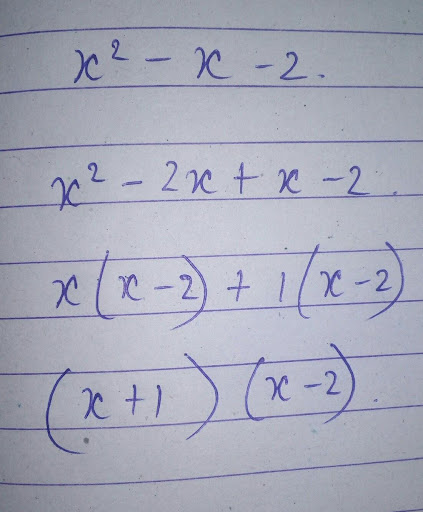 x² - x - 2.
x² - 2x + x - 2.
x(x-2) + 1(x-2)
(x+1)(x-2).